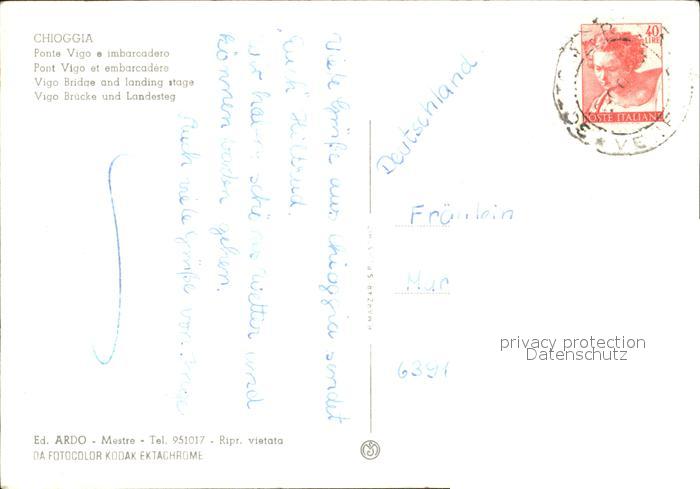 CHIOGGIA
Ponte Vigo e imbarcadero
Pont Vigo et embarcadère
Vigo Bridge and landing stage
Vigo Brücke und Landesteg
Viele Grüße aus Chioggia sendet
Euch Hiltrud.
Wir haben schönes Wetter und
können baden gehen.
Auch viele Grüße von
Deutschland
40
LIRE
POSTE ITALIANE
Fräulein
Mur
6391
privacy protection
Datenschutz
Ed. ARDO - Mestre - Tel. 951017 - Ripr. vietata
DA FOTOCOLOR KODAK EKTACHROME